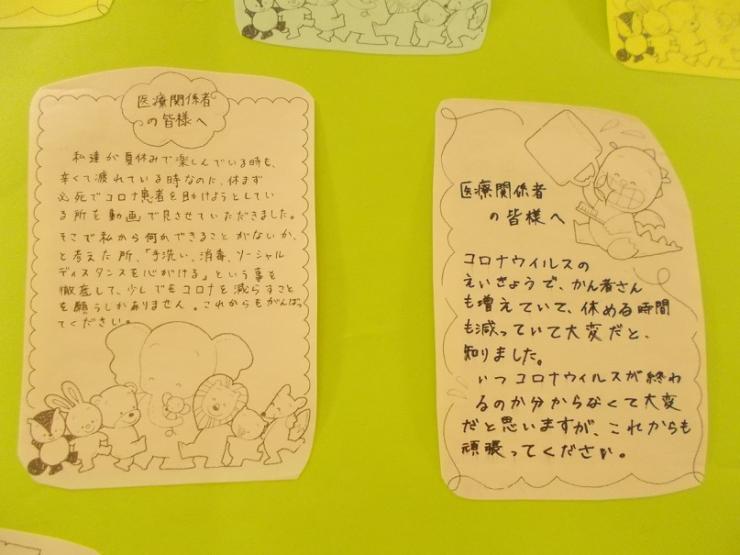 医療関係者
の皆様へ
私達が夏休みで楽しんでいる時も、
辛くて疲れている時なのに、休まず
必死でコロナ患者を助けようとしてい
る所を動画で見させていただきました。
そこで私から何かできることがないか、
と考えた所、「手洗い、消毒、ソーシャル
ディスタンスを心がける」という事を
徹底して、少しでもコロナを減らすこと
を願うしかありません。これからもがんばっ
てください。
医療関係者
の皆様へ
コロナウイルスの
えいきょうで、かん者さん
も増えていて、休める時間
も減っていて大変だと、
知りました。
いつコロナウィルスが終わ
るのか分からなくて大変
だと思いますが、これからも
頑張ってください。